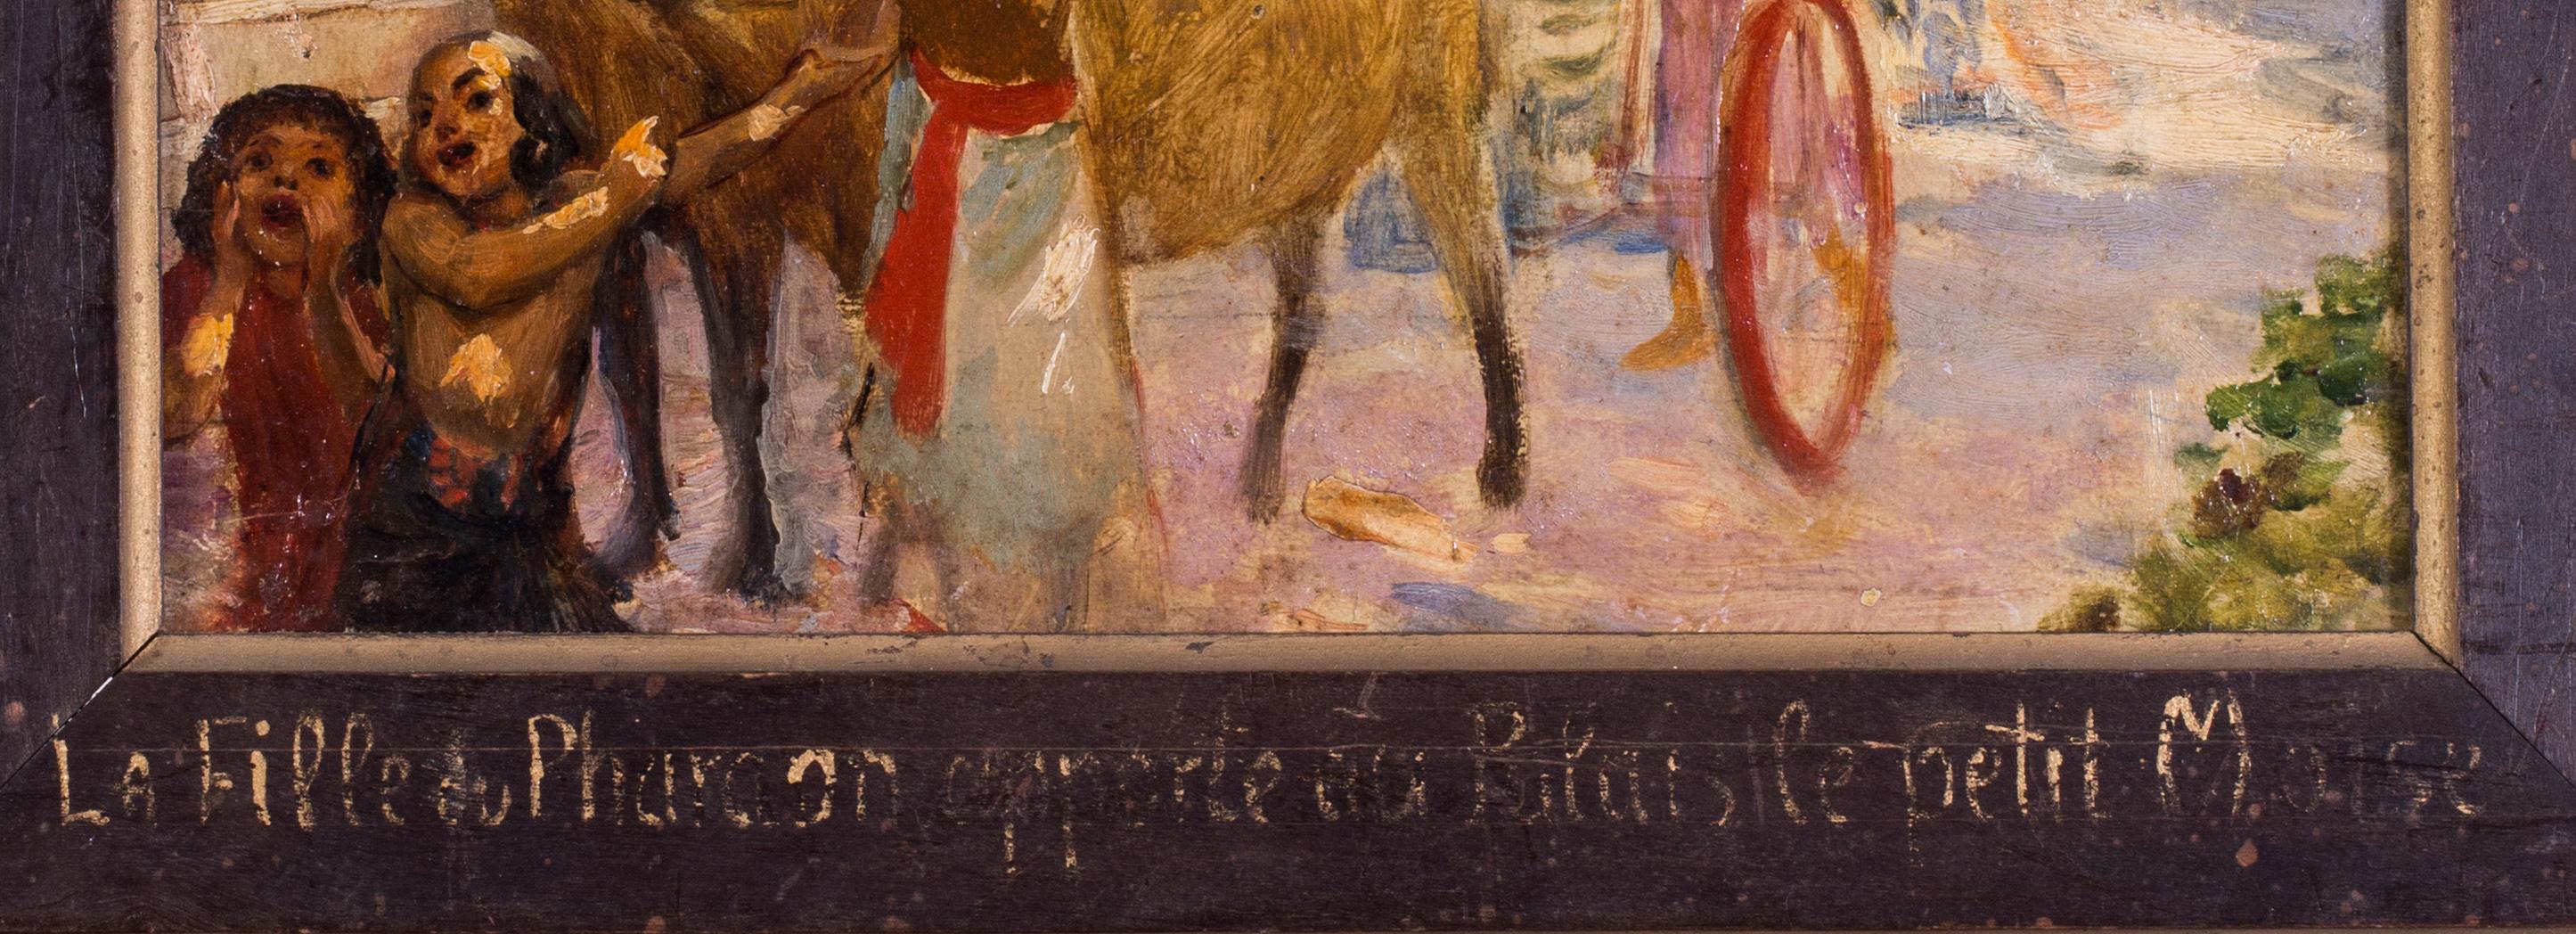 La Fille du Pharaon apporte au Palais le petit Moise